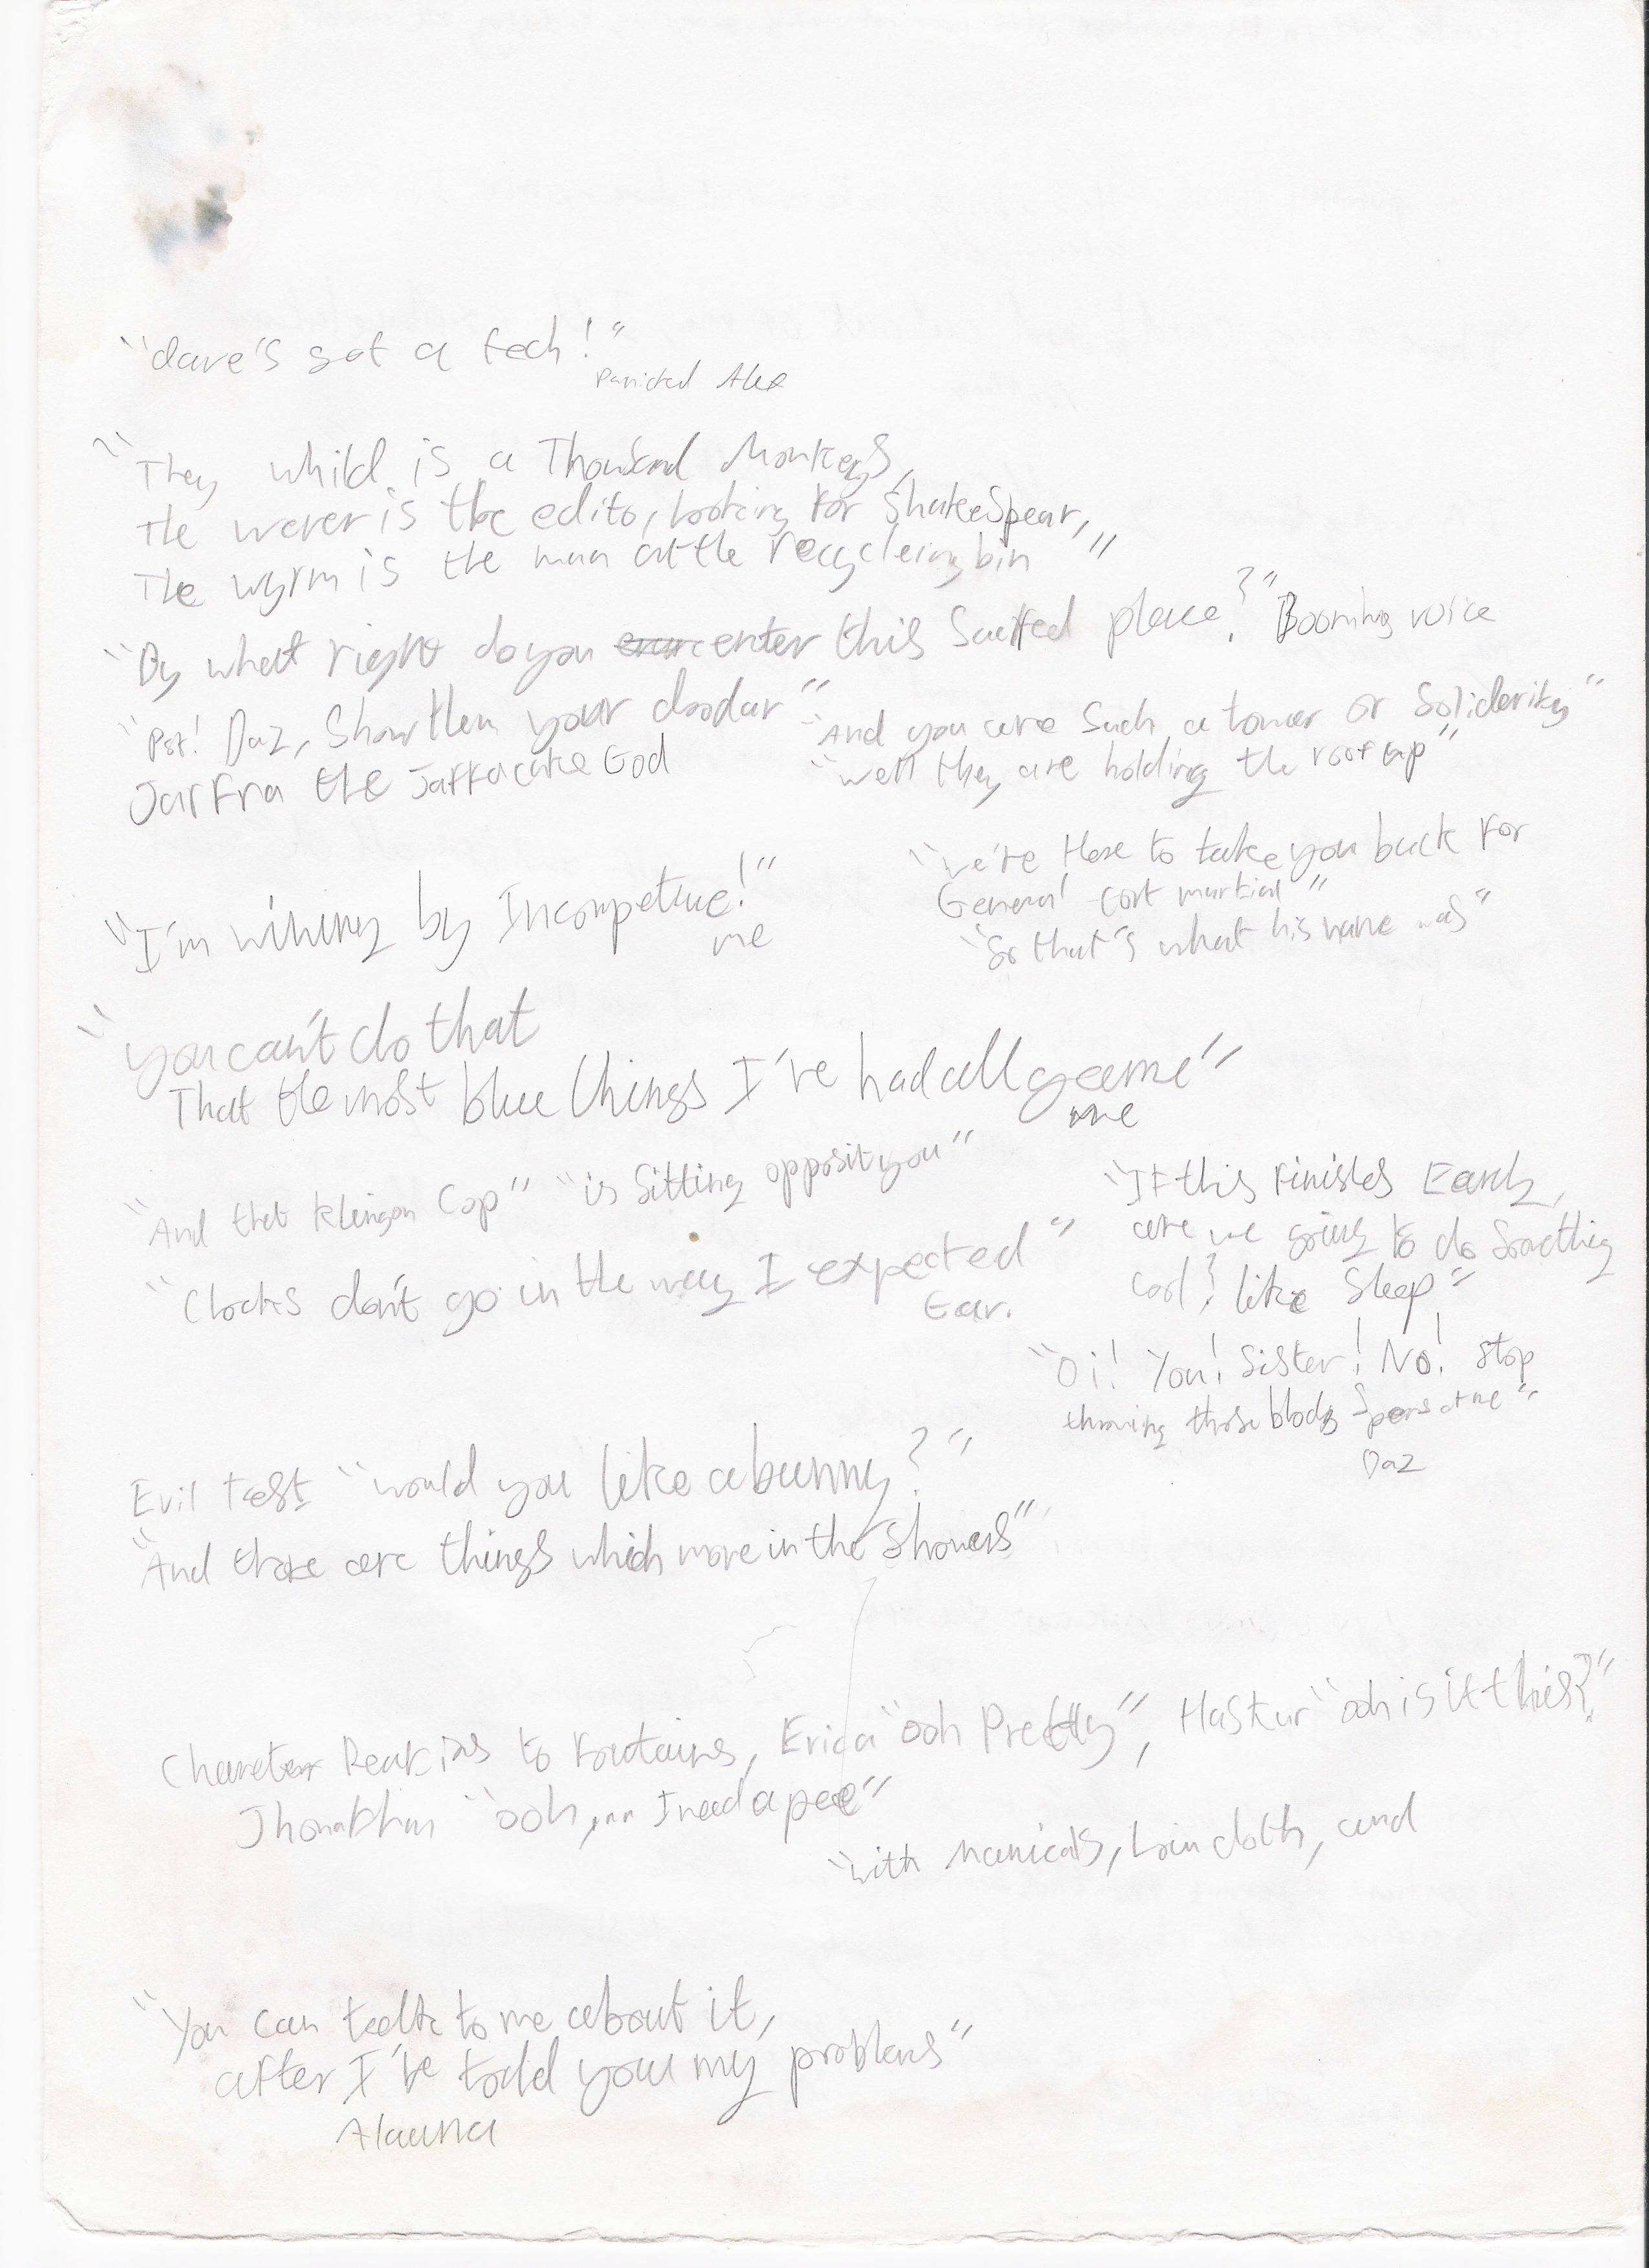 "dave's got a tech!"
Panicked Alex
"They whild is a Thousand Monkeys,
The wever is the edito, looking for ShakeSpear,
The wyrm is the man at the recycleing bin"
"By what right do you enter this Sacred place?" Booming voice
"Pst! Daz, Show them your doodar"
Jarfra the Jaffacake God
"And you are Such a tower of Soliderity"
"well they are holding the roof up"
"I'm wining by Incompetence!"
me
"we're Here to take you back for
General cort martial"
"So that's what his name was"
"you can't do that
That the most blue things I've had all game"
me
"And that Klingon Cap" "is Sitting opposit you"
"Clocks don't go in the way I expected"
Ear.
"If this Finishes Early,
are we going to do Something
cool? like Sleep"
"Oi! You! Sister! No! Stop
throwing those bloody Spears at me"
Daz
Evil test "would you like a bunny?"
"And there are things which move in the Showers"
to Fountains, Erica "ooh Pretty", Hastur "ooh is it this?"
Jhonathun "ooh,... I need a pee"
"with manicals, Loin cloth, and
"You can talk to me about it,
after I've told you my problems"
Alauna